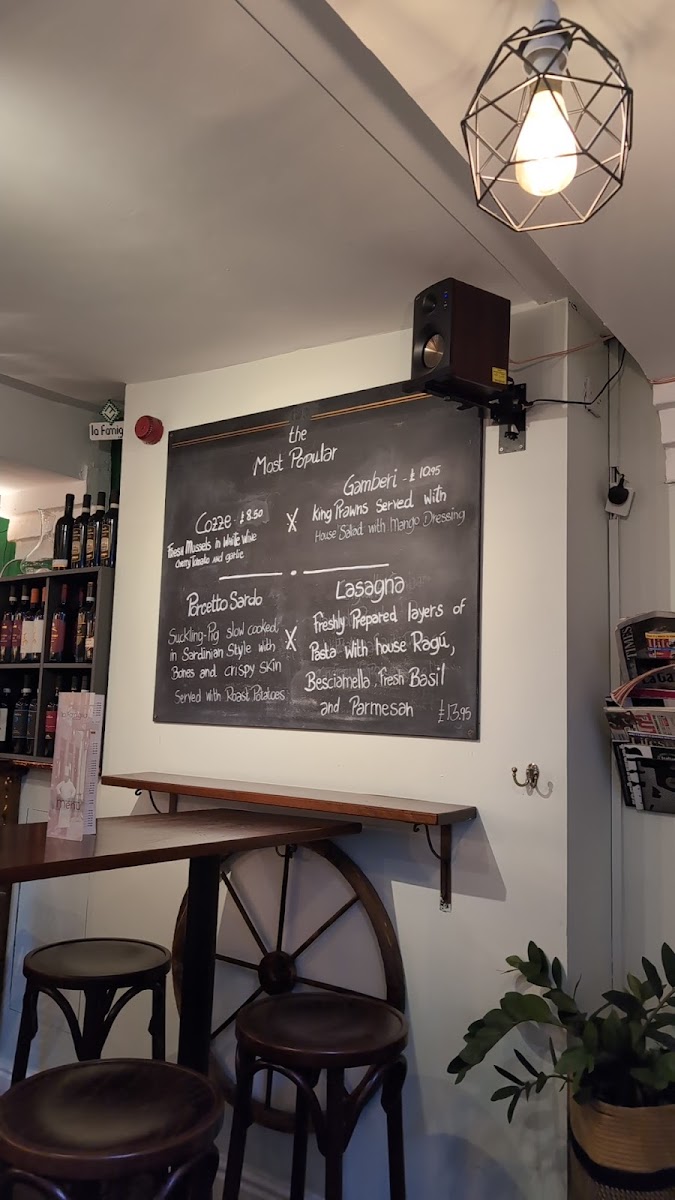 the
Most Popular
Cozze - £ 8.50
Fresh Mussels in White Wine
Cherry Tomato and garlic
X
Gamberi - £ 10.95
King Prawns Served with
House Salad with Mango Dressing
Porcetto Sardo
Suckling-Pig slow cooked
in Sardinian Style with
Bones and crispy skin
Served with Roast Potatoes
X
Lasagna
Freshly Prepared layers of
Pasta With house Ragú,
Besciamella, Fresh Basil
and Parmesan £13.95
la Famig
menu
TIMES